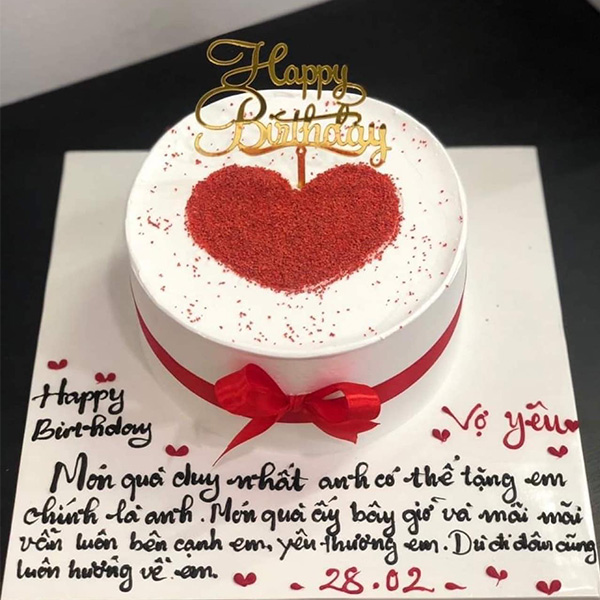 Happy
Birthday
Happy
Birthday
Vợ yêu
Món quà duy nhất anh có thể tặng em
chính là anh. Món quà ấy bây giờ và mãi mãi
vẫn luôn bên cạnh em, yêu thương em. Dù đi đâu cũng
luôn hướng về em.
28.02